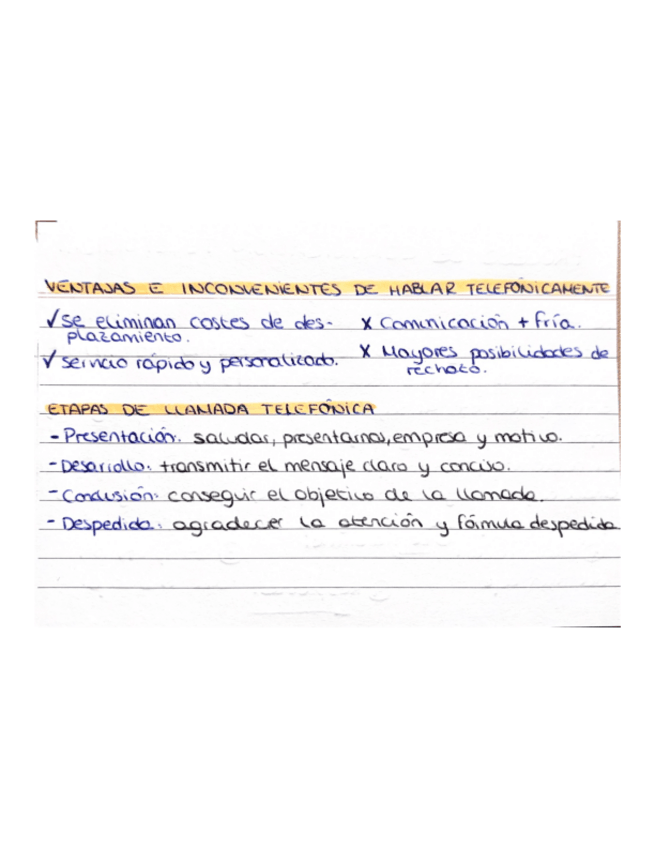 VENTAJAS E INCONVENIENTES DE HABLAR TELEFÓNICAMENTE
✓ Se eliminan costes de des-
plazamiento.
✓ Servicio rápido y personalizado.
X Comunicación + fría.
X Mayores posibilidades de
rechazo.
ETAPAS DE LLAMADA TELEFÓNICA
- Presentación: saludar, presentarnos, empresa y motivo.
- Desarrollo: transmitir el mensaje claro y conciso.
- Conclusión: conseguir el objetivo de la llamada.
- Despedida: agradecer la atención y fórmula despedida